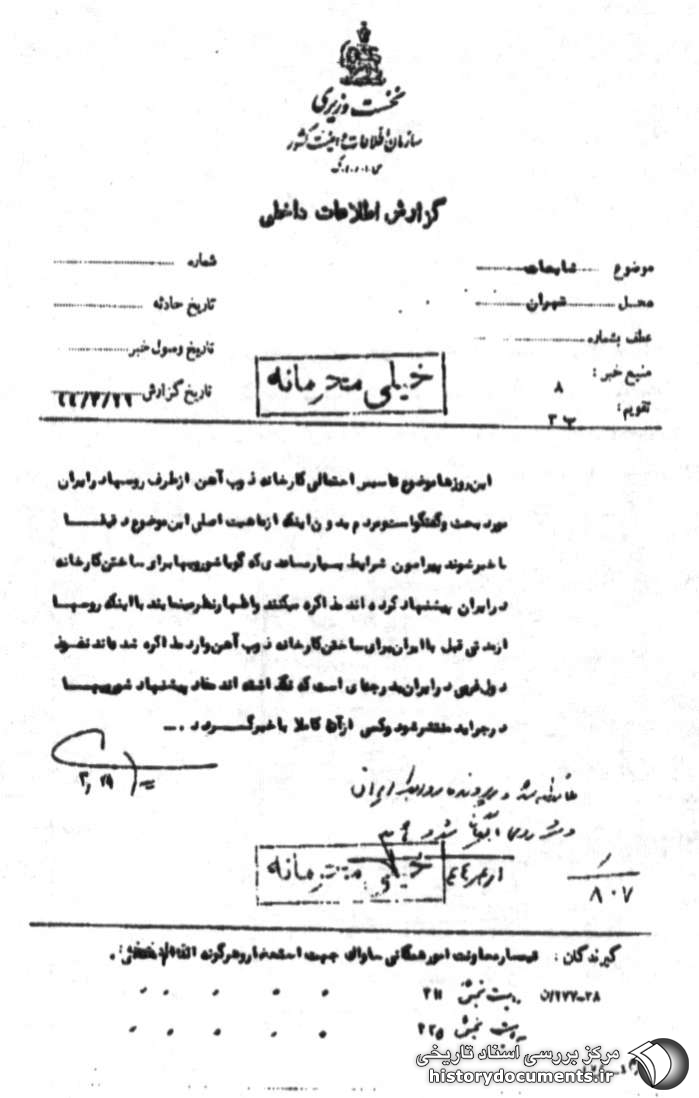 نخست وزیری
سازمان اطلاعات و امنیت کشور
س.ا.و.ا.ک
گزارش اطلاعات داخلی
موضوع شایعات
محل تهران
عطف بشماره
منبع خبر : ۸
تقویم : ب ۳
شماره
تاریخ حادثه
تاریخ وصول خبر
تاریخ گزارش
خیلی محرمانه
این روزها موضوع تاسیس احتمالی کارخانه ذوب آهن از طرف روسها در ایران
مورد بحث و گفتگو است و مردم بدون اینکه از ماهیت اصلی این موضوع دقیقا
باخبر شوند پیرامون شرایط بسیار مساعدی که گویا شورویها برای ساختن کارخانه
در ایران پیشنهاد کرده اند مذاکره میکنند و اظهار نظر مینمایند با اینکه روسها
از مدتی قبل با ایران برای ساختن کارخانه ذوب آهن وارد مذاکره شده اند نفوذ
دول غربی در ایران بدرجه‌ای است که نگذاشته اند مفاد پیشنهاد شورویها
در جراید منتشر شود و کسی از آن کاملا باخبر گردد .ـ
۳٫۲۹
پرونده روابط ایران
و شوروی
خیلی محرمانه
۸۰۷
گیرندگان : تیمسار معاونت امور همگانی ساواک جهت استحضار و هرگونه اقدام مقتضی .
بخش ۳۱۱
بخش ۳۲۵
مرکز بررسی اسناد تاریخی
historydocuments.ir